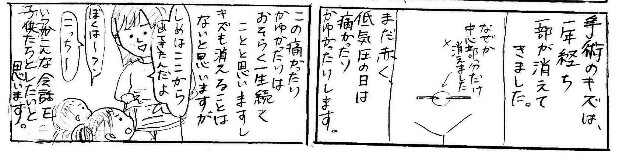 手術のキズは、
一年経ち
一部が消えて
きました。
なぜか
中心部分だけ
消えました
まだ赤く、
低気圧の日は
痛かたり
かゆかたりします。
この痛かたり
かゆかたりは
おそらく一生続く
ことと思いますし
キズも消えることは
ないと思いますが
しめはここから
ぼくはー?ン
こっちー
いつかこんな会話を
子供たちとしたいと
思います。